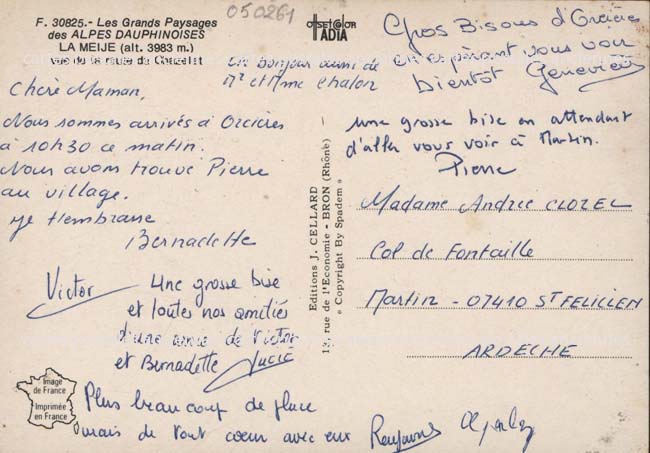 F. 30825.- Les Grands Paysages
des ALPES DAUPHINOISES
LA MEIJE (alt. 3983 m.)
vue de la route du Chazelet
050261
offset color
IADIA
Un bonjour aussi de
Mr et Mme Chalon
Gros Bisous d'Orcières
en espérant vous voir
bientôt Geneviève
Chère Maman,
Nous sommes arrivés à Orcières
à 10h30 ce matin.
Nous avons trouvé Pierre
au village.
Je t'embrasse
Bernadette
Victor
Une grosse bise
et toutes nos amitiés
d'une amie de Victor
et Bernadette Lucie
Plus beaucoup de place
mais de tout coeur avec eux
Une grosse bise en attendant
d'aller vous voir à Martin.
Pierre
Editions J. CELLARD
13, rue de l'Economie - BRON (Rhône)
« Copyright By Spadem »
Madame Andrée CLOZEL
Col de Fontaille
Martin - 07410 ST FELICIEN
ARDECHE
Image
de France
Imprimée
en France